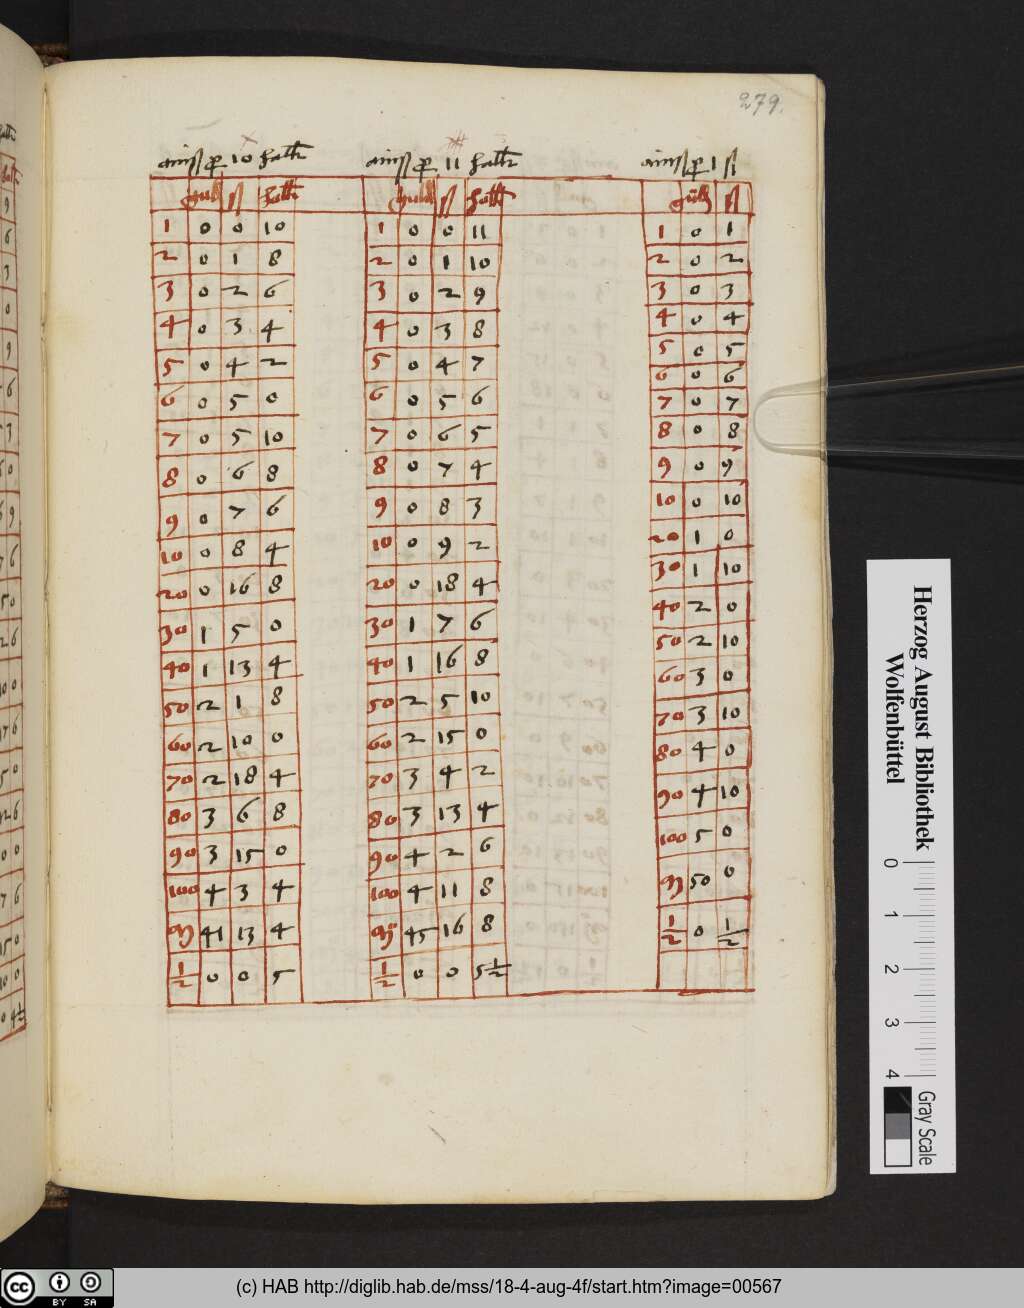 279.
ainß ꝑ 10 hallr
guld ß hallr
1 0 0 10
2 0 1 8
3 0 2 6
4 0 3 4
5 0 4 2
6 0 5 0
7 0 5 10
8 0 6 8
9 0 7 6
10 0 8 4
20 0 16 8
30 1 5 0
40 1 13 4
50 2 1 8
60 2 10 0
70 2 18 4
80 3 6 8
90 3 15 0
100 4 3 4
41 13 4
1/2 0 0 5
ainß ꝑ 11 hallr
guld ß hallr
1 0 0 11
2 0 1 10
3 0 2 9
4 0 3 8
5 0 4 7
6 0 5 6
7 0 6 5
8 0 7 4
9 0 8 3
10 0 9 2
20 0 18 4
30 1 7 6
40 1 16 8
50 2 5 10
60 2 15 0
70 3 4 2
80 3 13 4
90 4 2 6
100 4 11 8
45 16 8
1/2 0 0 5 1/2
ainß ꝑ 1 ß
guld ß
1 0 1
2 0 2
3 0 3
4 0 4
5 0 5
6 0 6
7 0 7
8 0 8
9 0 9
10 0 10
20 1 0
30 1 10
40 2 0
50 2 10
60 3 0
70 3 10
80 4 0
90 4 10
100 5 0
50 0
1/2 0 1/2
Herzog August Bibliothek
Wolfenbüttel
0 1 2 3 4
Gray Scale
cc BY SA
(c) HAB http://diglib.hab.de/mss/18-4-aug-4f/start.htm?image=00567